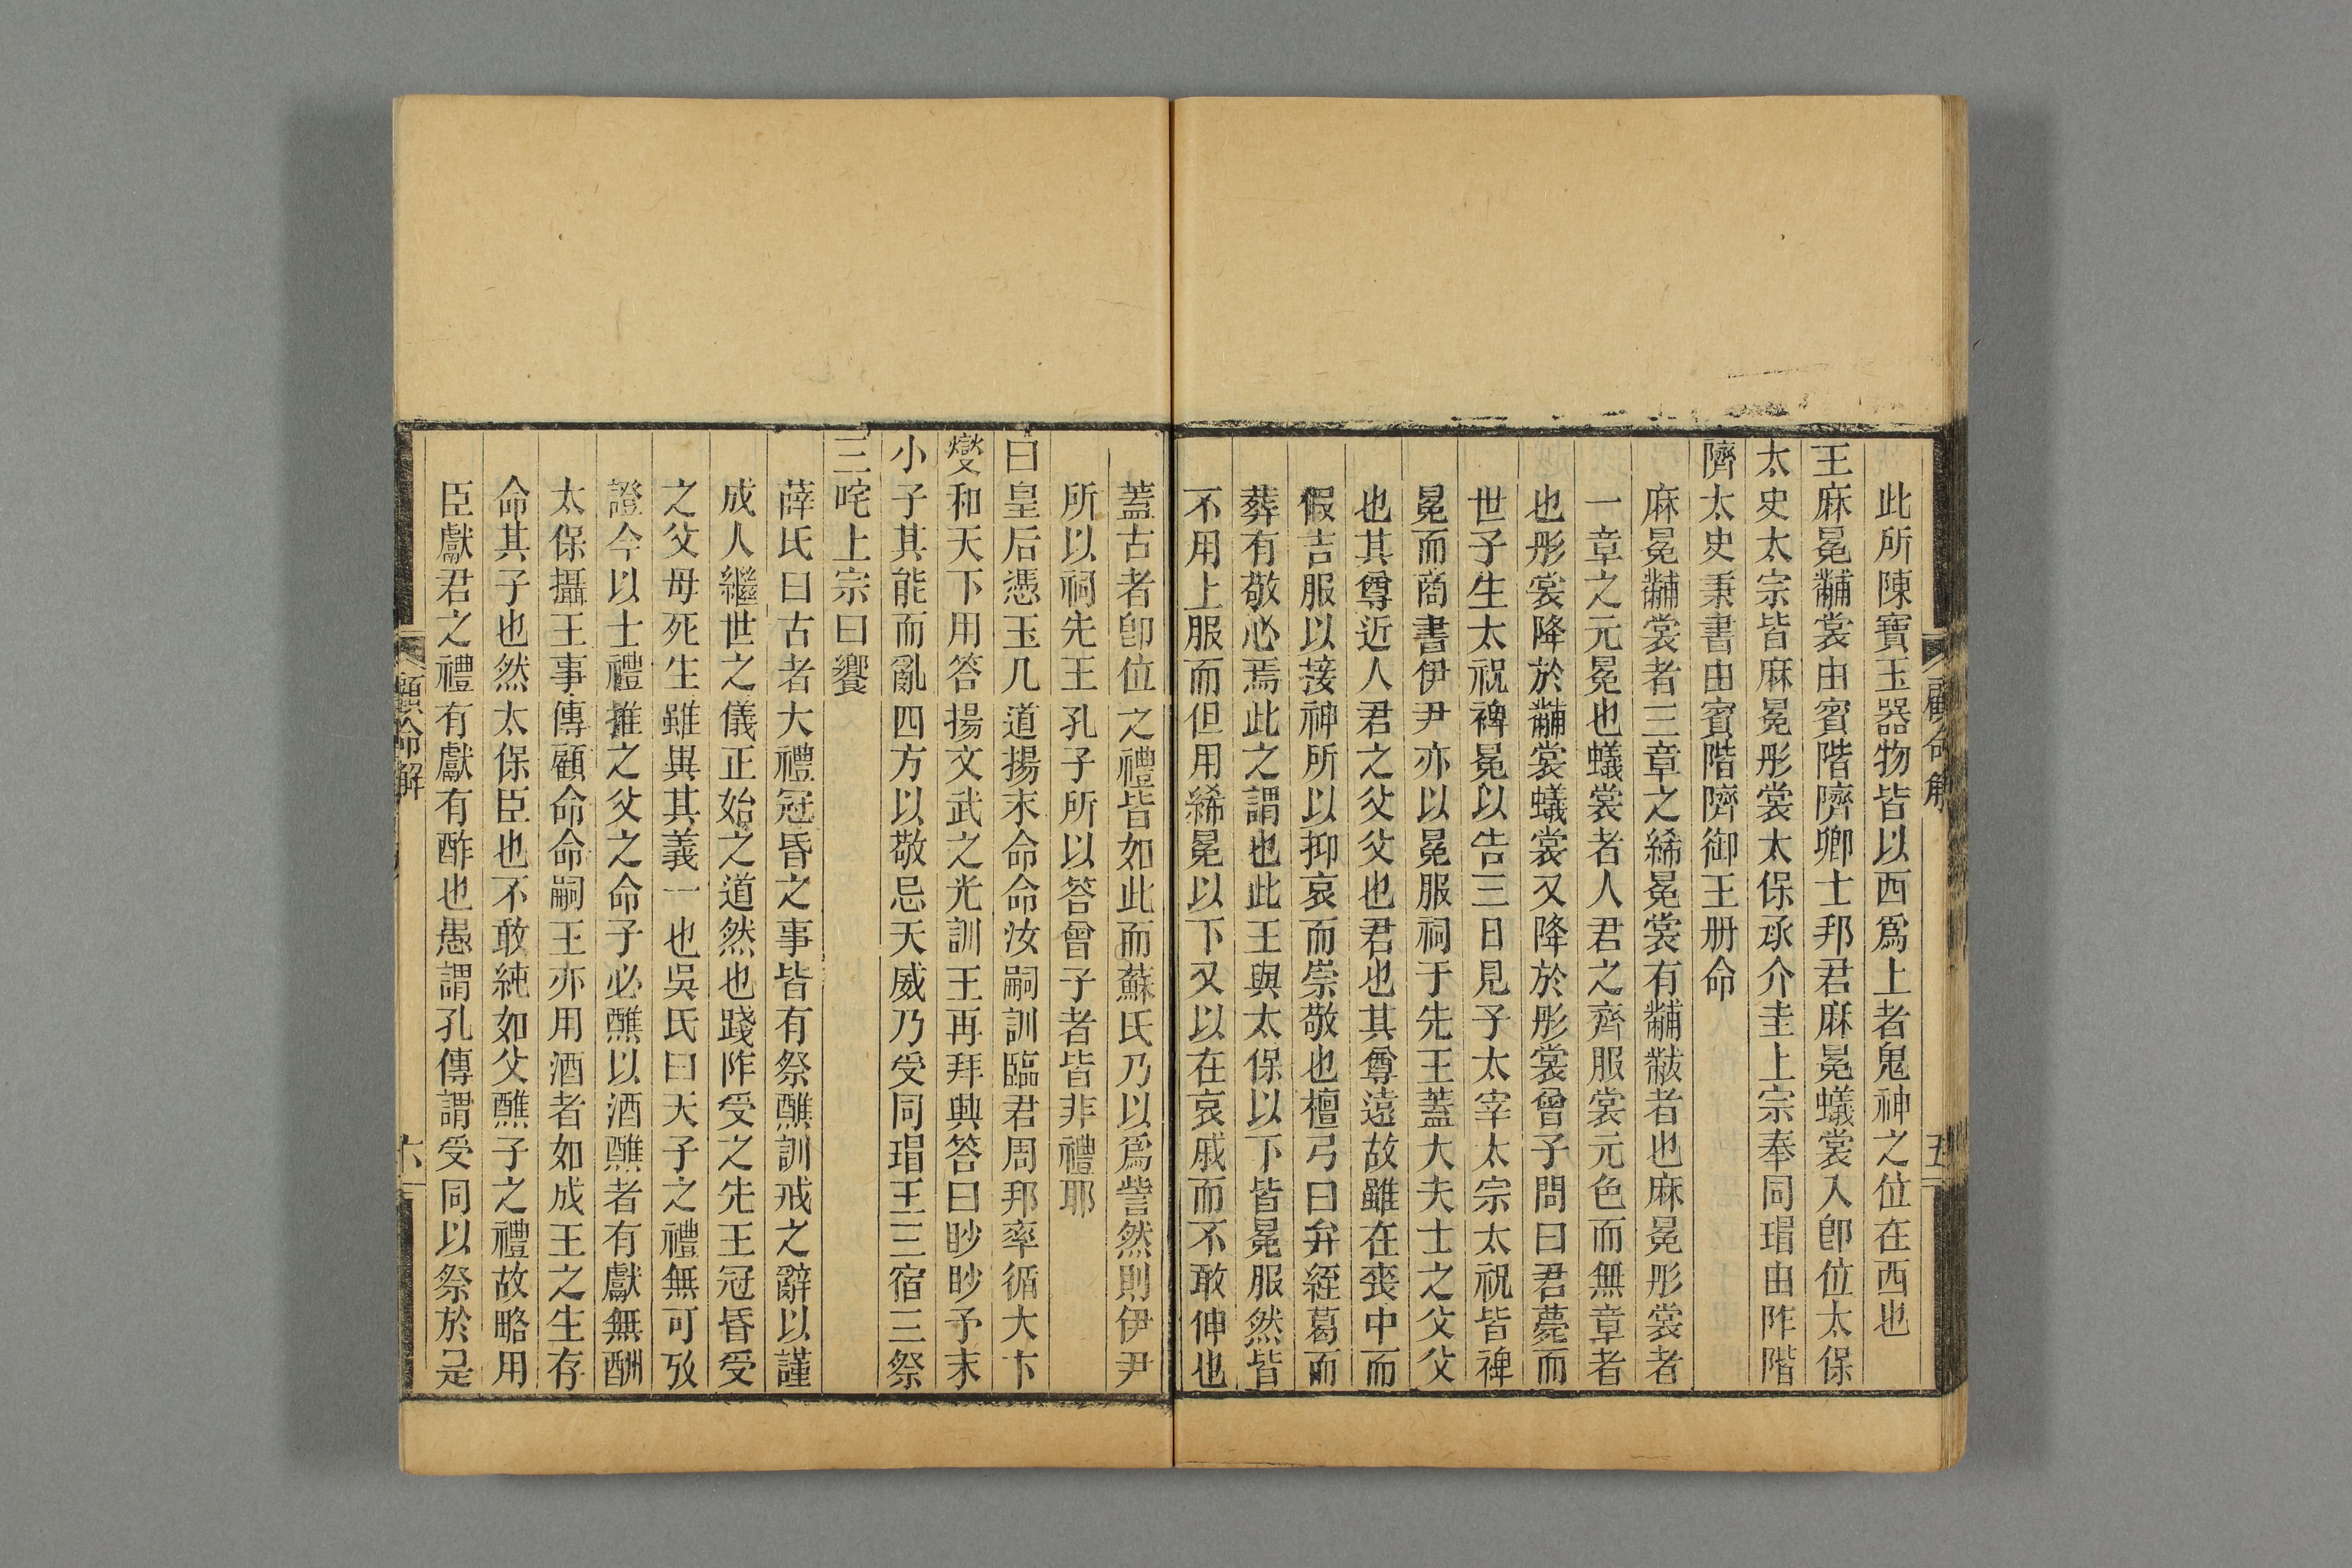 此所陳寶玉器物皆以西爲上者鬼神之位在西也
王麻冕黼裳由賓階隮卿士邦君麻冕蟻裳入卽位太保
太史太宗皆麻冕彤裳太保承介圭上宗奉同瑁由阼階
隮太史秉書由賓階隮御王册命
麻冕黼裳者三章之絺冕裳有黼黻者也麻冕彤裳者
一章之元冕也蟻裳者人君之齊服裳元色而無章者
也彤裳降於黼裳蟻裳又降於彤裳曾子問曰君薨而
世子生太祝裨冕以告三日見子太宰太宗太祝皆裨
冕而商書伊尹亦以冕服祠于先王蓋大夫士之父父
也其尊近人君之父父也君也其尊遠故雖在喪中而
假吉服以接神所以抑哀而崇敬也檀弓曰弁絰葛而
葬有敬心焉此之謂也此王與太保以下皆冕服然皆
不用上服而但用絺冕以下又以在哀戚而不敢伸也
顧命解
五
蓋古者卽位之禮皆如此而蘇氏乃以爲訾然則伊尹
所以祠先王孔子所以答曾子者皆非禮耶
曰皇后憑玉几道揚末命命汝嗣訓臨君周邦率循大卞
燮和天下用答揚文武之光訓王再拜興答曰眇眇予末
小子其能而亂四方以敬忌天威乃受同瑁王三宿三祭
三咤上宗曰饗
薛氏曰古者大禮冠昏之事皆有祭醮訓戒之辭以謹
成人繼世之儀正始之道然也踐阼受之先王冠昏受
之父母死生雖異其義一也吳氏曰天子之禮無可攷
證今以士禮推之父之命子必醮以酒醮者有獻無酬
太保攝王事傳顧命命嗣王亦用酒者如成王之生存
命其子也然太保臣也不敢純如父醮子之禮故略用
臣獻君之禮有獻有酢也愚謂孔傳謂受同以祭於是
顧命解
六